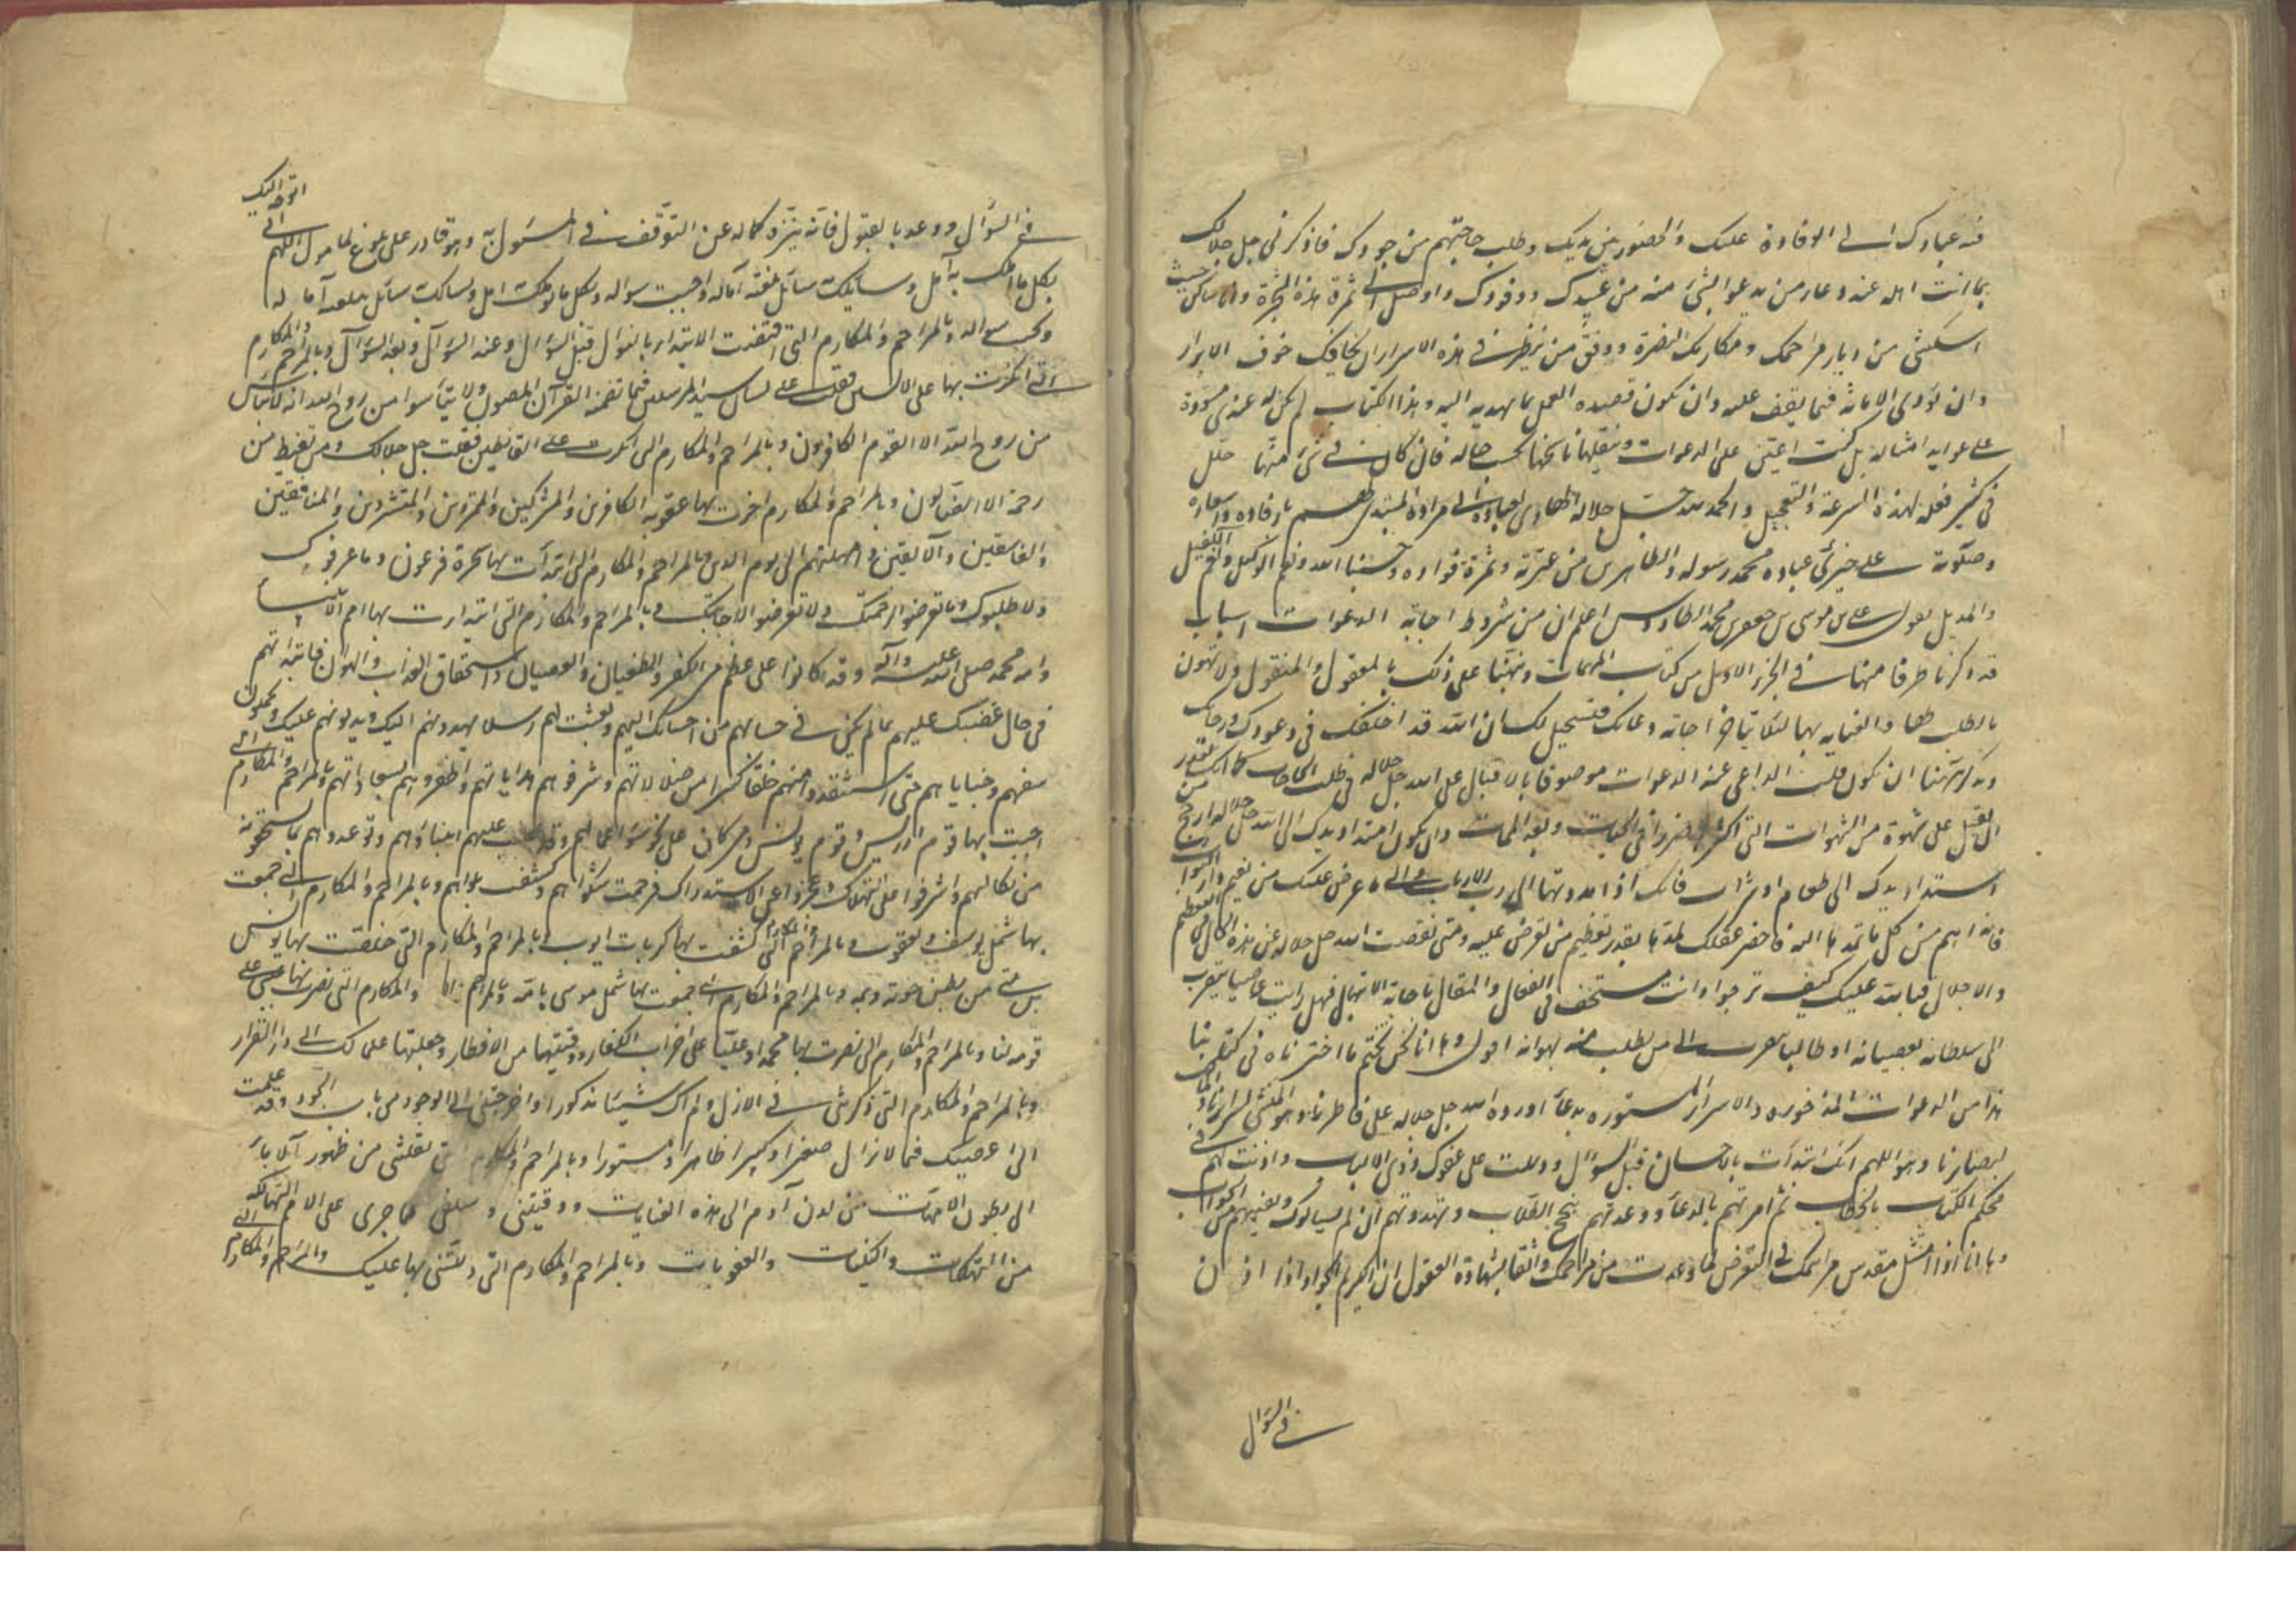 فيه عبادك الى الوفادة عليك والحضور بين يديك وطلب حاجتهم من جودك فاذكرني جل جلالك
بما انت اهله عند دعاء من يدعو الشئ منه من عبيدك ووفودك واوصل الى ثمرة هذه الشجرة وانا ساكن حيث
اسكنتني من ديار مراحمك ومكارمك النضرة ووفق من ينظر في هذه الاسرار ان يخافك خوف الابرار
وان يؤدى الامانة فيما يقف عليه وان يكون قصده العمل بما يهديه اليه وهذا الكتاب لم يكن له عندي مسودة
على عوايد امثاله بل كنت اعيّن على الدعوات وينقلها ناسخها بحسب حاله فان كان في شئ منها خلل
في فعله لهذه السرعة والتعجيل والحمد لله جل جلاله الهادي لعباده الى مراده المبتدئ لهم بارفاده واسعاده
وصلوته على خير عباده محمد رسوله والطاهرين من عترته وثمرة فؤاده وحسبنا الله ونعم الوكيل ونعم الكفيل
يقول على بن موسى بن جعفر بن محمد الطاووس اعلم ان من شروط اجابة الدعوات اسباب
قد ذكرنا طرفا منها في الجزء الاول من كتاب المهمات ونبهنا على ذلك بالمعقول والمنقول ولا تهون
بالطلب لها والعناية بها لئلا يتاخر اجابة دعائك فتتخيل لك ان الله قد اخلفك في وعودك ورجائك
ونذكر هنا ان يكون قلب الداعي عند الدعوات موصوفا بالاقبال على الله جل جلاله في طلب الحاجات كما انك تقدر
ان تقبل على شهوة من الشهوات التي اكثر ضررا في الحيات وبعد الممات وان يكون امتداد يدك الى الله جل جلاله ارجح من
استداد يدك الى طعام او شراب فانك اذا مددتهما الى رب الارباب
فانه اهم من كل ما تمدها اليه فاحضر عقلك لمدها بقدر تعظيم من تعرض عليه ومتى نقصت الله جل جلاله عن هذه الحال من التعظيم
والاجلال فبالله عليك كيف ترجوا وانت مستخف في الفعال والمقال باجابة الابتهال فهل رايت عاصيا يتقرب
الى سلطانه بعصيانه او طالبا يتقرب الى من يطلب منه بهوانه اقول وها انا نحن نختم ما اخترناه في كتابنا
هذا من الدعوات المذخوره والاسرار المستوره بدعاء اورده الله جل جلاله على خاطرنا وهو المنشئ لسرائرنا والمالك
لبصايرنا وهو اللهم انك ابتدأت بالاحسان قبل السؤال ودللت على عفوك ذوي الالباب واذنت لهم في
محكم الكتاب بالخطاب ثم امرتهم بالدعاء ووعدتهم بنجح الطلاب وتهددتهم ان لم يسالوك ونعيتهم من الجواب
وها انا اذا امتثل مقدس مراسمك في التعرض لما وعدت من مراحمك واثقا بشهادة العقول ان الكريم الجواد اذا اذن
في السؤال
في السؤال ووعد بالقبول فانه ينزه كماله عن التوقف في المسئول به وهو قادر على بلوغ المامول اللهم انى
اتوجه اليك
بكل ما املك به آمل وسايلك سائل بلغته آماله واجبت سواله وبكل ما يؤملك امل ويسالك سائل تبلغه آماله
وتجيب سواله وبالمراحم والمكارم التي اقتضت الابتداء بالنوال قبل السؤال وعند السؤال وبعد السؤال وبالمراحم والمكارم
التي انكرت بها على الايس فقلت على لسان سيد المرسلين فيما تضمنه القرآن المصون ولا تيأسوا من روح الله انه لا ييأس
من روح الله الا القوم الكافرون وبالمراحم والمكارم التي انكرت على القانطين فقلت جل جلالك ومن يقنط من
رحمة الا الضالون وبالمراحم والمكارم اخرت بها عقوبة الكافرين والمشركين والمتمردين والمتشردين والمنافقين
والفاسقين وامهلتهم الى يوم الدين وبالمراحم والمكارم التي ابتدأت بها سحرة فرعون وما عرفوك
ولا طلبوك وما تعرضوا لرحمتك ولا تعرضوا لاجابتك وبالمراحم والمكارم التي ابتدات بها امم الانبياء
وامة محمد صلى الله عليه وآله وقد كانوا على عظيم من الكفر والطغيان والعصيان واستحقاق العذاب والهوان فابتداتهم
في حال غضبك عليهم بما لم يكن في حسابهم من احسانك اليهم وبعثت لهم رسلا يهدونهم اليك ويدلونهم عليك ويحملون
سفههم وجناياتهم حتى استنقذوا منهم خلقا كثيرا من ضلالاتهم وشرفوهم بهداياتهم واظفروهم بسعاداتهم وبالمراحم والمكارم التي
اجبت بها قوم ادريس وقوم يونس ومن كان على نحو سؤ اعمالهم وقد غضب عليهم انبياؤهم وتوعدوهم بما يستحقونه
من نكالهم واشرفوا على الهلاك وعجزوا عن الاستدراك فرحمت شكواهم وكشفت بلواهم وبالمراحم والمكارم التي جمعت
بها شمل يوسف ويعقوب وبالمراحم والمكارم التي كشفت بها كربات ايوب وبالمراحم والمكارم التي خلصت بها يونس
بن متى من بطن حوته وبمه وبالمراحم والمكارم التي جمعت بها شمل موسى بامه وبالمراحم والمكارم التي نصرت بها عيسى على
قومه لنا وبالمراحم والمكارم التي نصرت بها محمدا وعليا على احزاب الكفار ووقيتهما من الاخطار وجعلتهما علمي لك الى دار القرار
وبالمراحم والمكارم التي ذكرتني في الازل ولم اك شيئا مذكورا واخرجتني الى الوجود من باب الجود وقد علمت
انى اعصيك فيما لا تزال صغيرا وكبيرا ظاهرا ومستورا وبالمراحم والمكارم التي نقلتني من ظهور الآباء
الى بطون الامهات من لدن آدم الى هذه الغايات ووقيتني وسلفي مما جرى على الامم الهالكة
من النكبات والعقوبات وبالمراحم والمكارم التي دللتني بها عليك وبالمراحم والمكارم التي